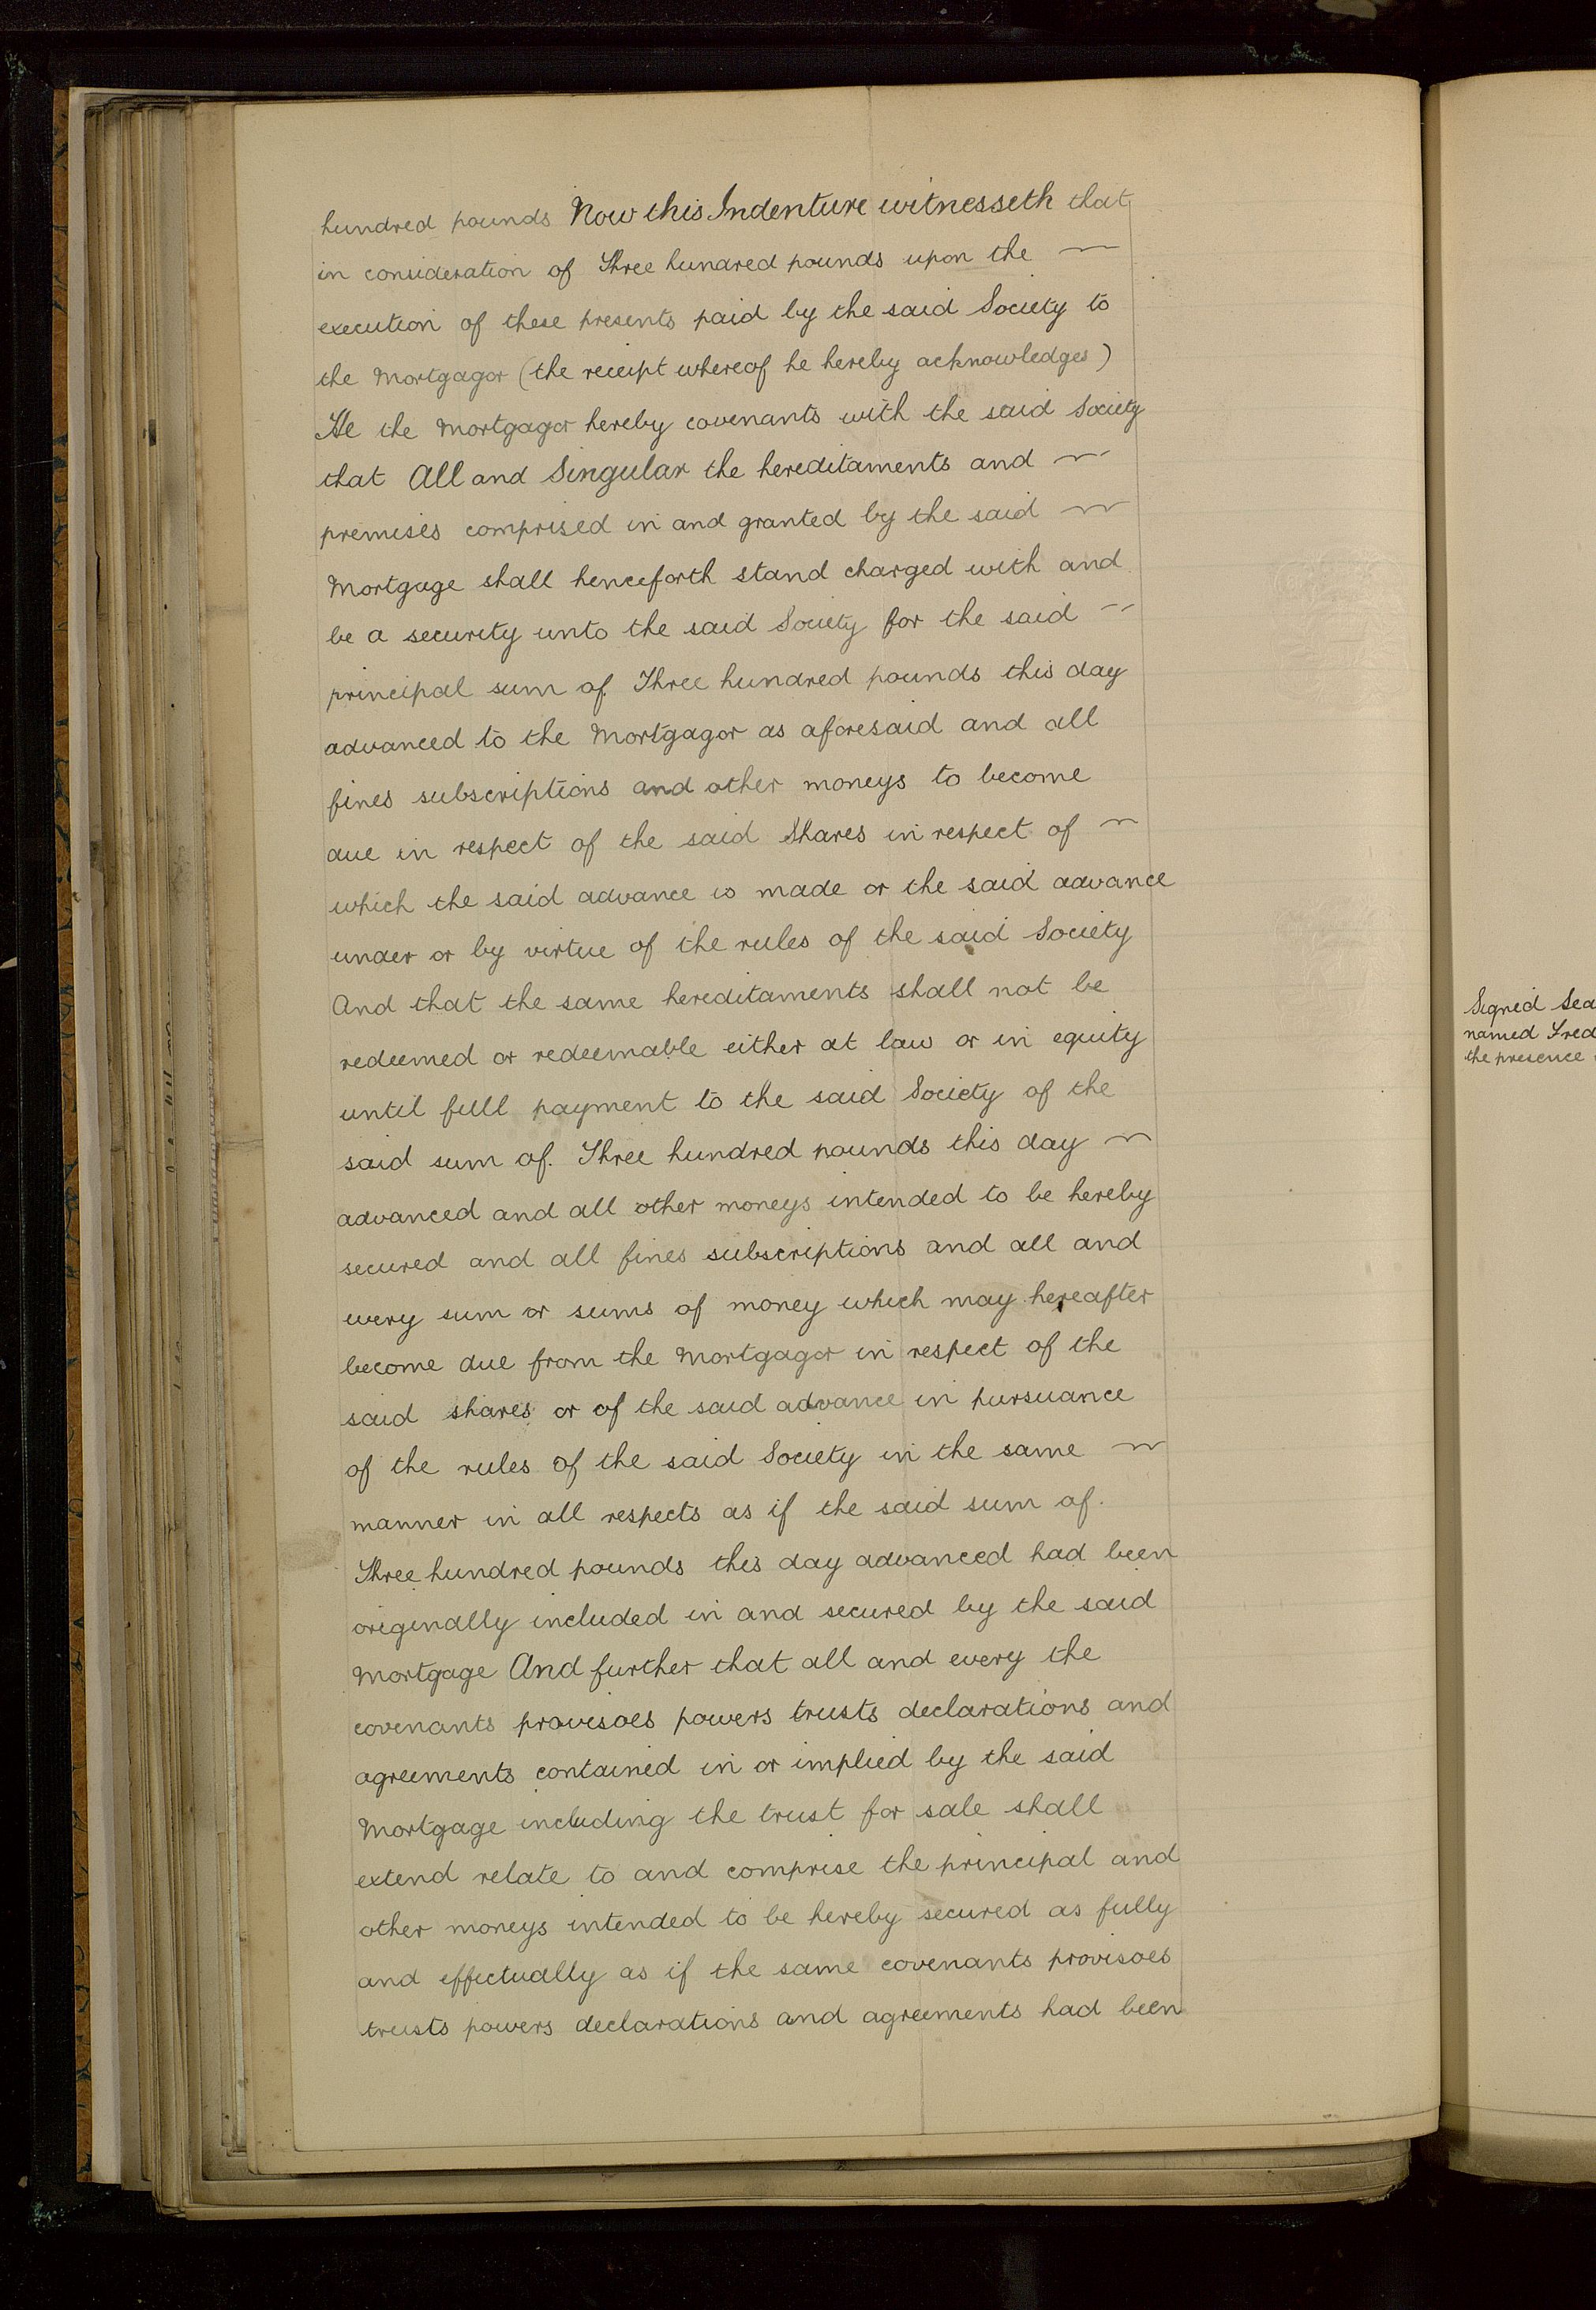 hundred pounds Now this Indenture witnesseth that
in consideration of Three hundred pounds upon the
execution of these presents paid by the said Society to
the Mortgagor (the receipt whereof he hereby acknowledges)
He the Mortgagor hereby covenants with the said Society
that All and Singular the hereditaments and
premises comprised in and granted by the said
Mortgage shall henceforth stand charged with and
be a security unto the said Society for the said
principal sum of Three hundred pounds this day
advanced to the Mortgagor as aforesaid and all
fines subscriptions and other moneys to become
due in respect of the said Shares in respect of
which the said advance is made or the said advance
under or by virtue of the rules of the said Society
And that the same hereditaments shall not be
redeemed or redeemable either at law or in equity
until full payment to the said Society of the
said sum of Three hundred pounds this day
advanced and all other moneys intended to be hereby
secured and all fines subscriptions and all and
every sum or sums of money which may hereafter
become due from the Mortgagor in respect of the
said shares or of the said advance in pursuance
of the rules of the said Society in the same
manner in all respects as if the said sum of
Three hundred pounds this day advanced had been
originally included in and secured by the said
Mortgage And further that all and every the
covenants provisoes powers trusts declarations and
agreements contained in or implied by the said
Mortgage including the trust for sale shall
extend relate to and comprise the principal and
other moneys intended to be hereby secured as fully
and effectually as if the same covenants provisoes
trusts powers declarations and agreements had been
Signed Sea
named Fred
the presence